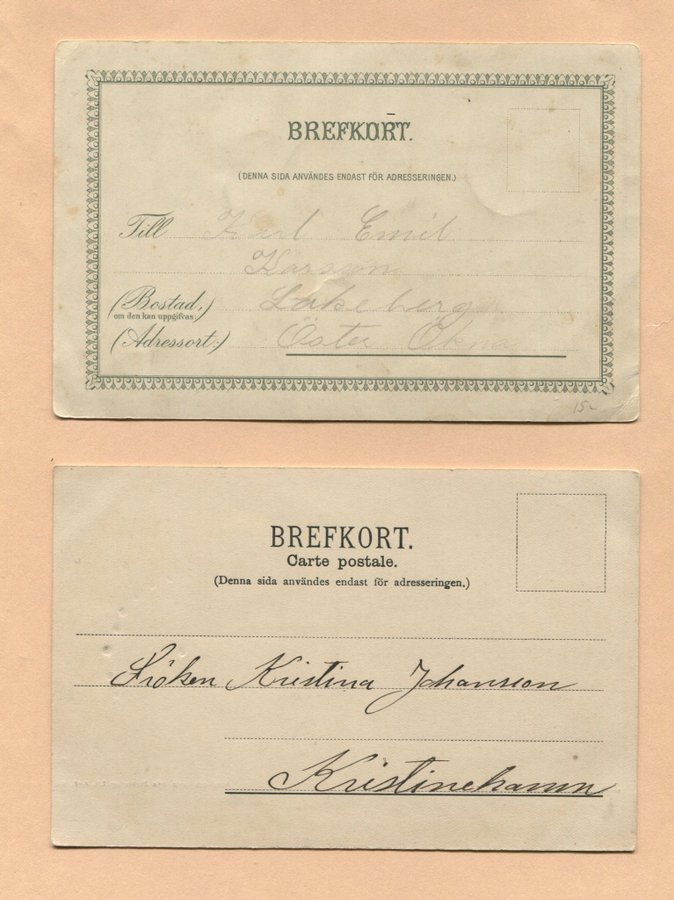 BREFKORT.
(DENNA SIDA ANVÄNDES ENDAST FÖR ADRESSERINGEN.)
Till Karl Emil
Karsson
(Bostad,) Lökeberga
om den kan uppgifvas:
(Adressort:) Öster Ökna
15-
BREFKORT.
Carte postale.
(Denna sida användes endast för adresseringen.)
Fröken Kristina Johansson
Kristinehamn